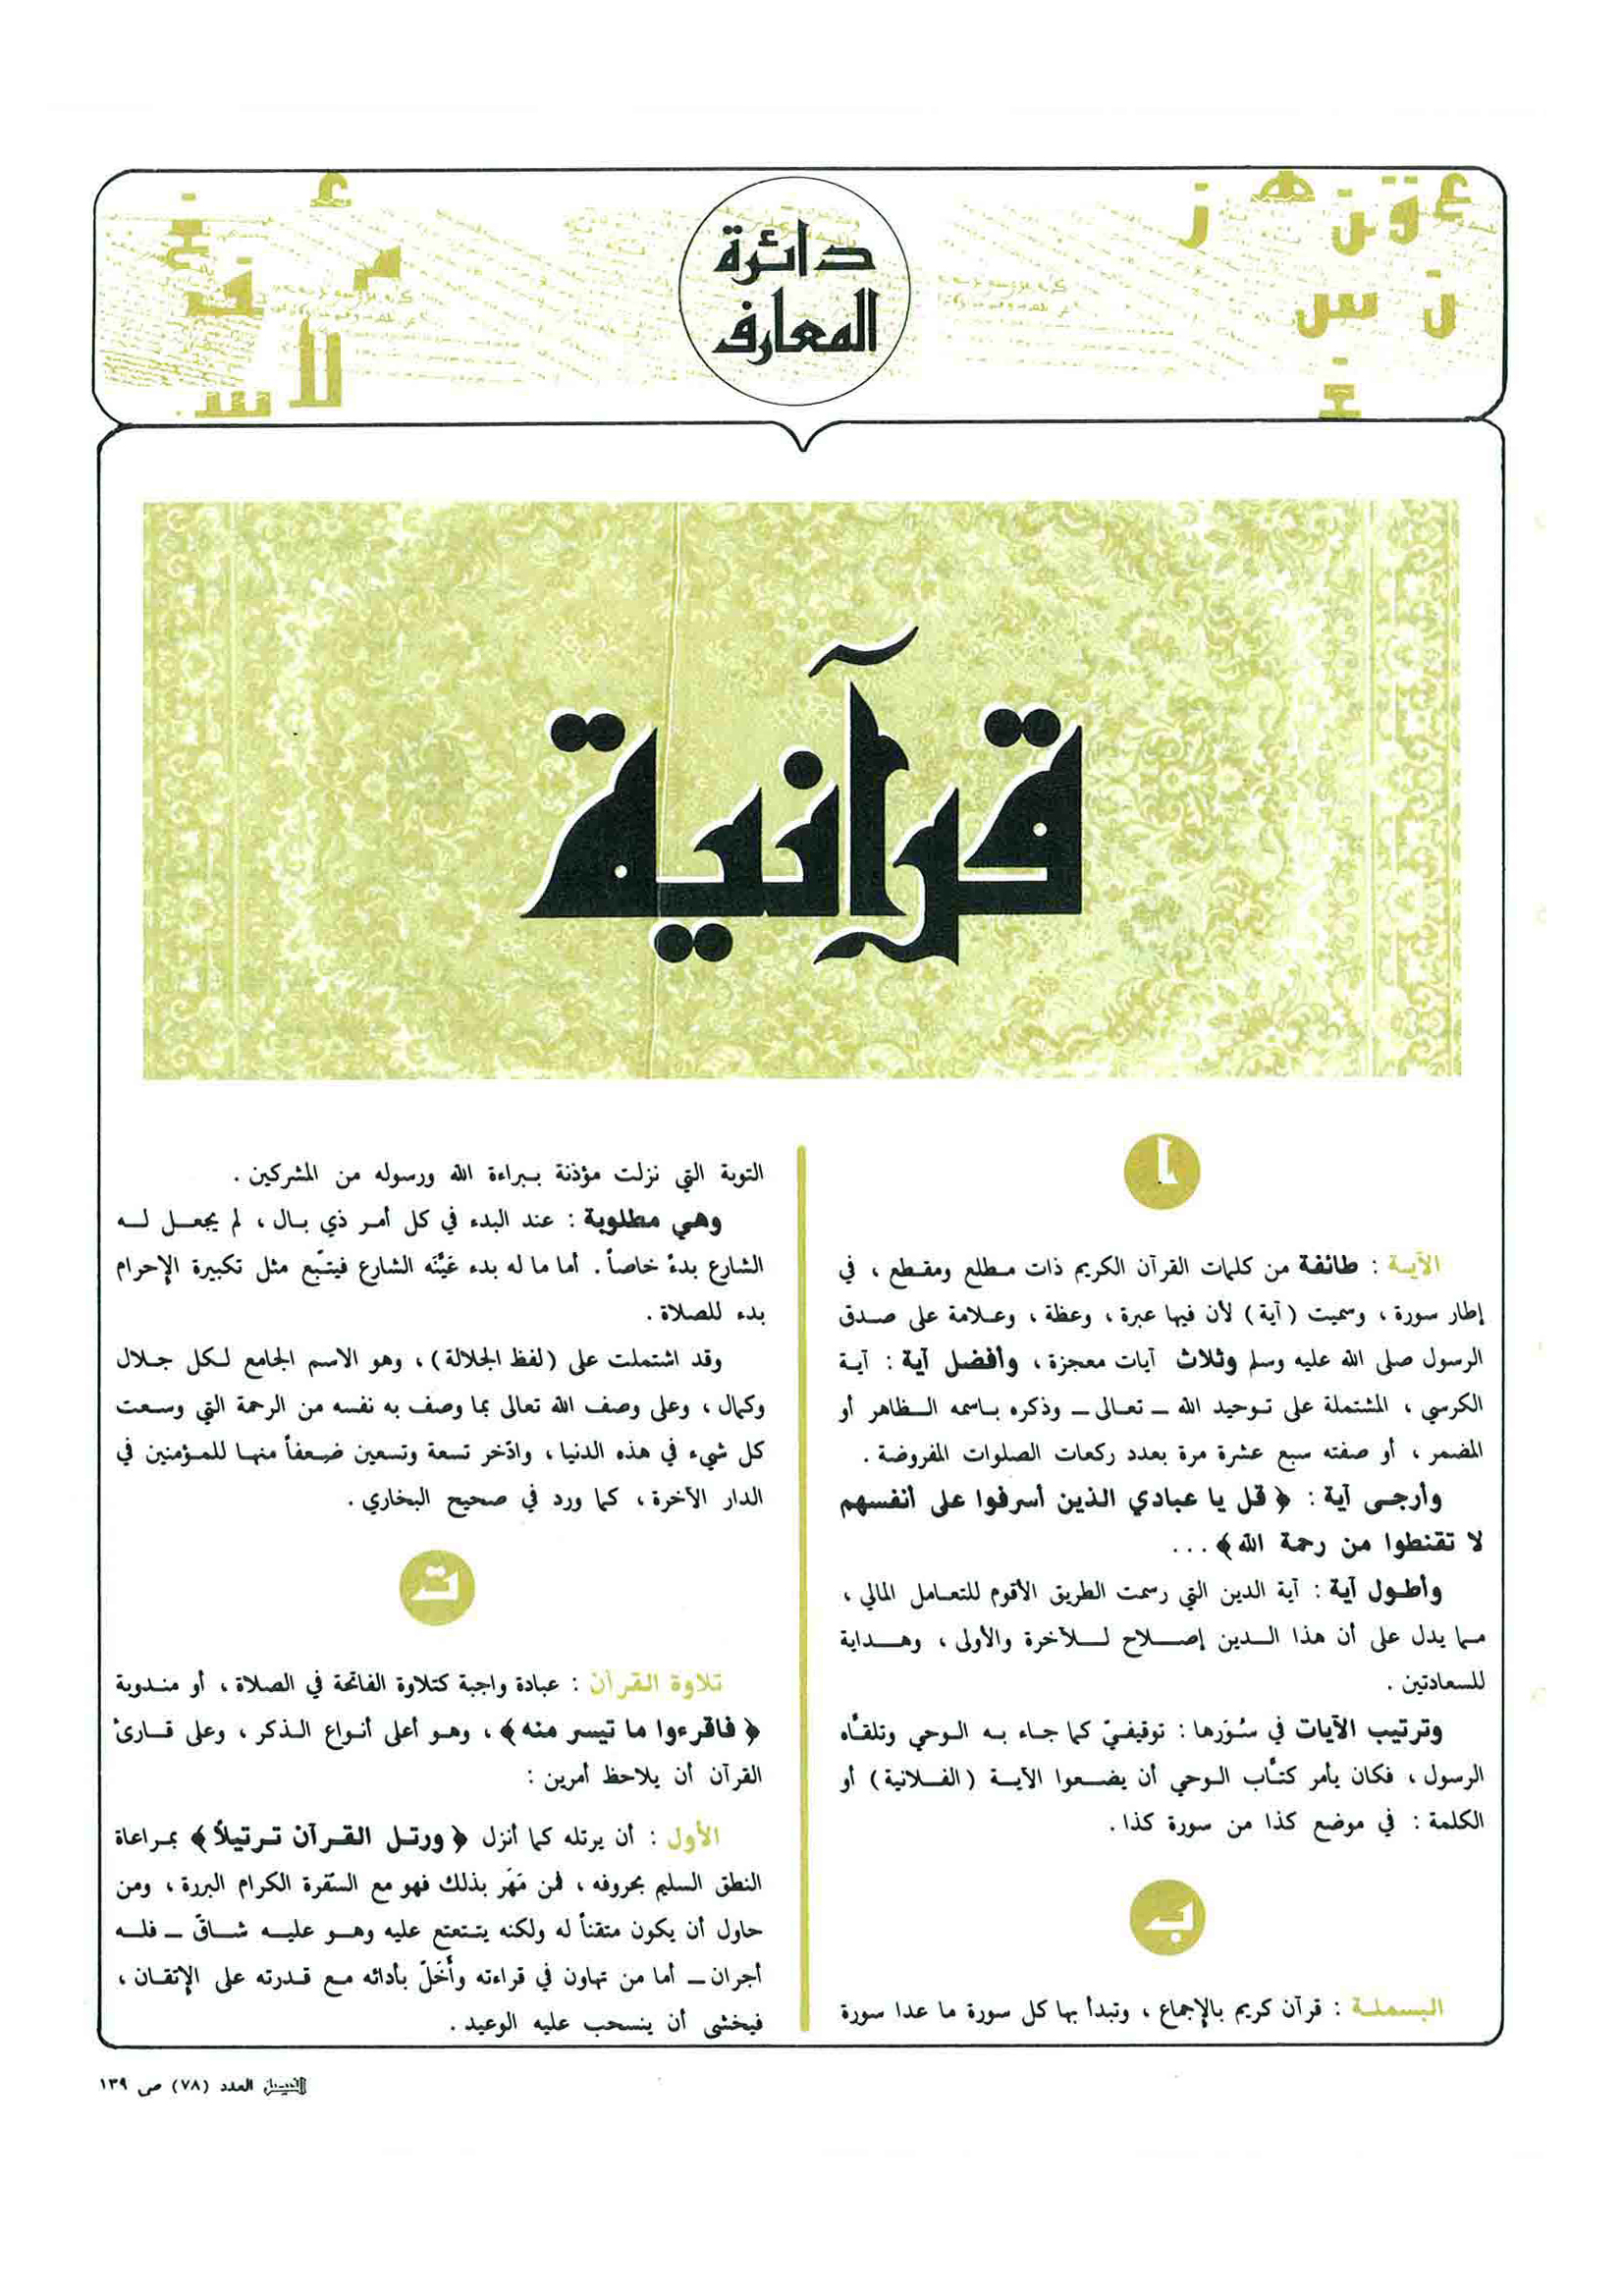 دائرة
المعارف
قرآنية
ا
الآيـة : طائفة من كلمات القرآن الكريم ذات مـطلع ومقـطع ، في
إطار سورة ، وسميت (آية) لأن فيها عبرة ، وعظة ، وعـلامة على صـدق
الرسول صلى الله عليه وسلم وثلاث آيات معجزة ، وأفضل آية : آيـة
الكرسي ، المشتملة على تـوحيد الله ــ تعـالى ــ وذكره بـاسمه الـظاهر أو
المضمر ، أو صفته سبع عشرة مرة بعدد ركعات الصلوات المفروضة .
وأرجـى آية : ﴿ قـل يا عبـادي الـذين أسـرفـوا على أنفسهم
لا تقنطوا من رحمة الله ﴾ ...
وأطـول آية : آية الدين التي رسمت الطريق الأقوم للتعـامل المالي ،
مـما يدل على أن هذا الـدين إصـلاح لـلآخرة والأولى ، وهـداية
للسعادتين .
وترتيب الآيات في سُوَرها : توقيفيّ كما جـاء بـه الـوحي وتلقـاه
الرسول ، فكان يأمر كتّـاب الـوحي أن يضـعوا الآيـة (الفـلانية) أو
الكلمة : في موضع كذا من سورة كذا .
بـ
البسملـة : قرآن كريم بالإجماع ، وتبدأ بها كل سورة ما عدا سورة
التوبة التي نزلت مؤذنة بـبراءة الله ورسوله من المشركين .
وهـي مطلوبة : عند البدء في كل أمـر ذي بـال ، لم يجعـل لـه
الشارع بدءً خاصاً . أما ما له بدء عَيَّنَه الشارع فيتّبع مثل تكبيرة الإحرام
بدء للصلاة .
وقد اشتملت على (لفظ الجلالة) ، وهو الاسم الجامع لـكل جـلال
وكمال ، وعلى وصف الله تعالى بما وصف به نفسه من الرحمة التي وسـعت
كل شيء في هذه الدنيا ، وادّخر تسعة وتسعين ضـعفاً منهـا للمـؤمنين في
الدار الآخرة ، كما ورد في صحيح البخاري .
ت
تلاوة القـرآن : عبادة واجبة كتلاوة الفاتحة في الصلاة ، أو منـدوبة
﴿ فاقرءوا ما تيسر منه ﴾ ، وهـو أعلى أنـواع الـذكر ، وعلى قـارئ
القرآن أن يلاحظ أمرين :
الأول : أن يرتله كما أنزل ﴿ ورتـل القـرآن تـرتيلاً ﴾ بمـراعاة
النطق السليم بحروفه ، فمن مَهَر بذلك فهو مع السّفرة الكرام البررة ، ومن
حاول أن يكون متقناً له ولكنه يتـتعتع عليه وهـو عليـه شـاقّ ــ فلـه
أجران ــ أما من تهاون في قراءته وأَخَلّ بأدائه مـع قـدرته على الإتقـان ،
فيخشى أن ينسحب عليه الوعيد .
الفيصل العدد (٧٨) ص ١٣٩